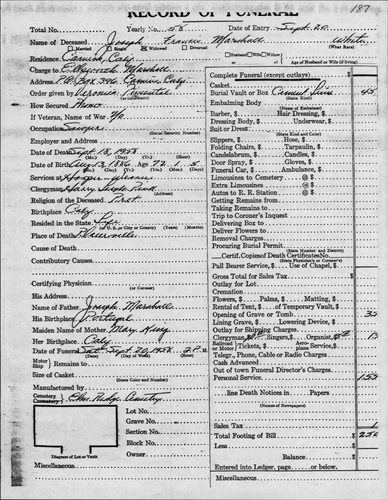 RECORD OF FUNERAL
187
Total No. Yearly No. 58 Date of Entry Sept. 20
Name of Deceased Joseph Francis Marshall White
Married Single Widowed Divorced (What Race)
Residence Camino, Caly
Husband Wife Widow Age of Husband or Wife (if living)
Charge to Ellsworth Marshall
Address P.O. Box 396 Camino, Caly
Order given by
How Secured Phone
If Veteran, Name of War No
Occupation
(Social Security Number)
Employer and Address
Date of Death Sept. 18, 1958
(Mo.) (Day) (Yr.)
Date of Birth 13, 1886 Age 72 1 5
(Mo.) (Day) (Yr.) (Yrs.) (Mos.) (Days)
Services at
Clergyman Harry
Religion of the Deceased Prot.
Birthplace Caly
Resided in the State Life
(or U. S. or City or County) (Years) (Months) (Days)
Place of Death Placerville
Cause of Death
Contributory Causes
Certifying Physician
(or Coroner)
His Address
Name of Father Joseph Marshall
His Birthplace Portugal
Maiden Name of Mother Mary King
Her Birthplace Caly
Date of Funeral Sat. Sept. 20, 1958 2 P.M
Motor Ship Remains to
Size of Casket
(State Color and Number)
Manufactured by
Cemetery Crematory Cemetery
Lot No.
Grave No.
Section No.
Block No.
Owner
Diagram of Lot or Vault
Miscellaneous
Complete Funeral (except outlays) $
Casket
Burial Vault or Box 45
(State Kind)
Embalming Body
(Name of Embalmer)
Barber, $ Hair Dressing, $
Dressing, $ Underwear, $
Suit or Dress
(State Kind and Color)
Slippers, $ Hose, $
Folding Chairs, $ Tarpaulin, $
Candelabrum, $ Candles, $
Door Spray, $ Gloves, $
Funeral Car, $ Ambulance, $
Limousines to Cemetery @ $
Extra Limousines @ $
Autos to R. R. Station @ $
Getting Remains from
Taking Remains to
Trip to Coroner's Inquest
Delivering Box to
Deliver Flowers to
Removal Charges
Procuring Burial Permit
(State Number and District)
Certif. Copies of Death Certificates No.
(State President's or Coroner's)
Pall Bearer Service, $ Use of Chapel, $
Gross Total for Sales Tax $
Outlay for Lot
Cremation
Flowers, $ Palms, $ Matting, $
Rental of Tent, $ of Temporary Vault, $
Opening of Grave or Tomb 35
Lining Grave, $ Lowering Device, $
Outlay for Shipping Charges
Clergyman, $ Singers, $ Organist, $ 15
Railroad or Motor Tickets, $ Aeroplane Service, $
Telegr., Phone, Cable or Radio Charges
Cash Advanced
Out of town Funeral Director's Charges
Personal Service 155
line Death Notices in Papers
Sales Tax $
Total Footing of Bill $
Less $
Balance $
Entered into Ledger, page or below.
Miscellaneous: